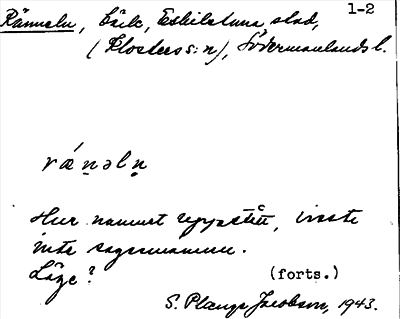 1-2
Ränneln, bäck, Eskilstuna stad,
(Klosters s:n), Södermanlands l.
rǽn̠əln̥
Hur namnet uppstått, visste
inte sagesmannen.
Läge?
(forts.)
S. Plange Jacobson, 1943.